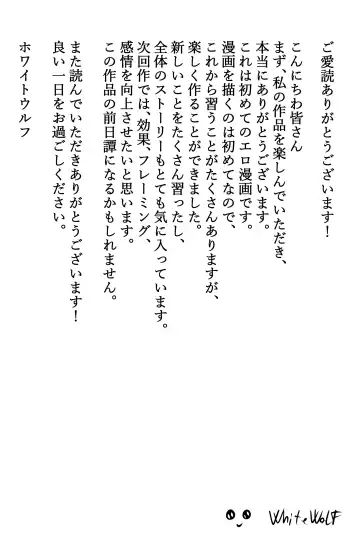 ご愛読ありがとうございます！
こんにちわ皆さん
まず、私の作品を楽しんでいただき、
本当にありがとうございます。
これは初めてのエロ漫画です。
漫画を描くのは初めてなので、
これから習うことがたくさんありますが、
楽しく作ることができました。
新しいことをたくさん習ったし、
全体のストーリーもとても気に入っています。
次回作では、効果、フレーミング、
感情を向上させたいと思います。
この作品の前日譚になるかもしれません。
また読んでいただきありがとうございます！
良い一日をお過ごしください。
ホワイトウルフ
WhiteWolf